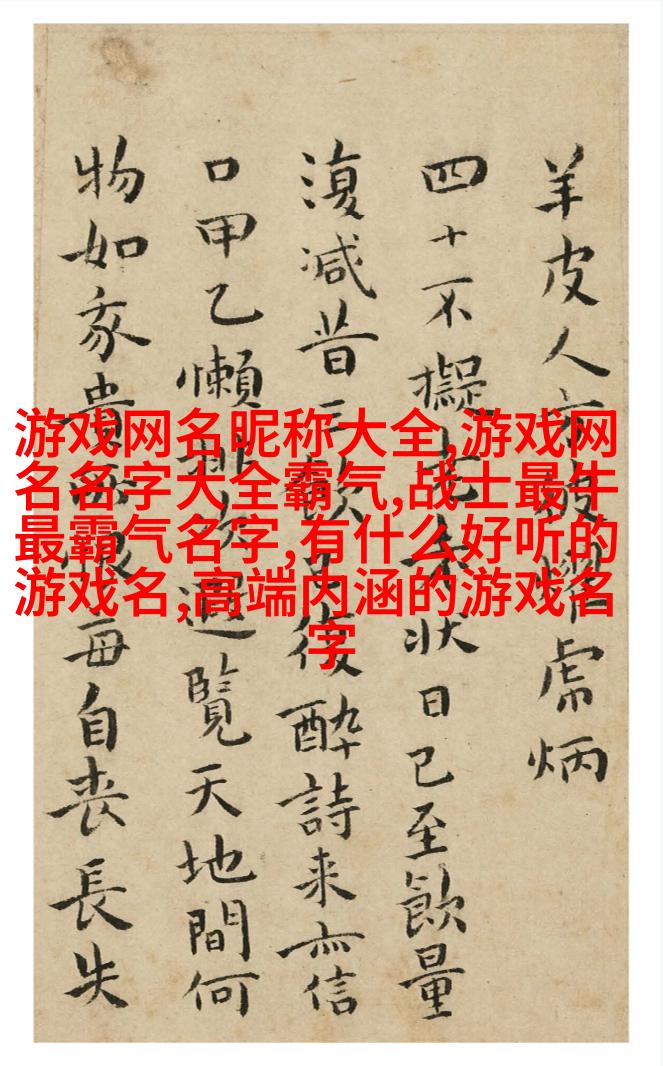 羊皮人亦耀虎炳
四十不擬老狀日已至飲量
復減昔三復醉詩来亦信
口甲乙懶排次遐覽天地間何
物如我貴恨每自喪長失
游戏网名昵称大全,游戏网
名名字大全霸气,战士最牛
最霸气名字,有什么好听的
游戏名,高端内涵的游戏名
字